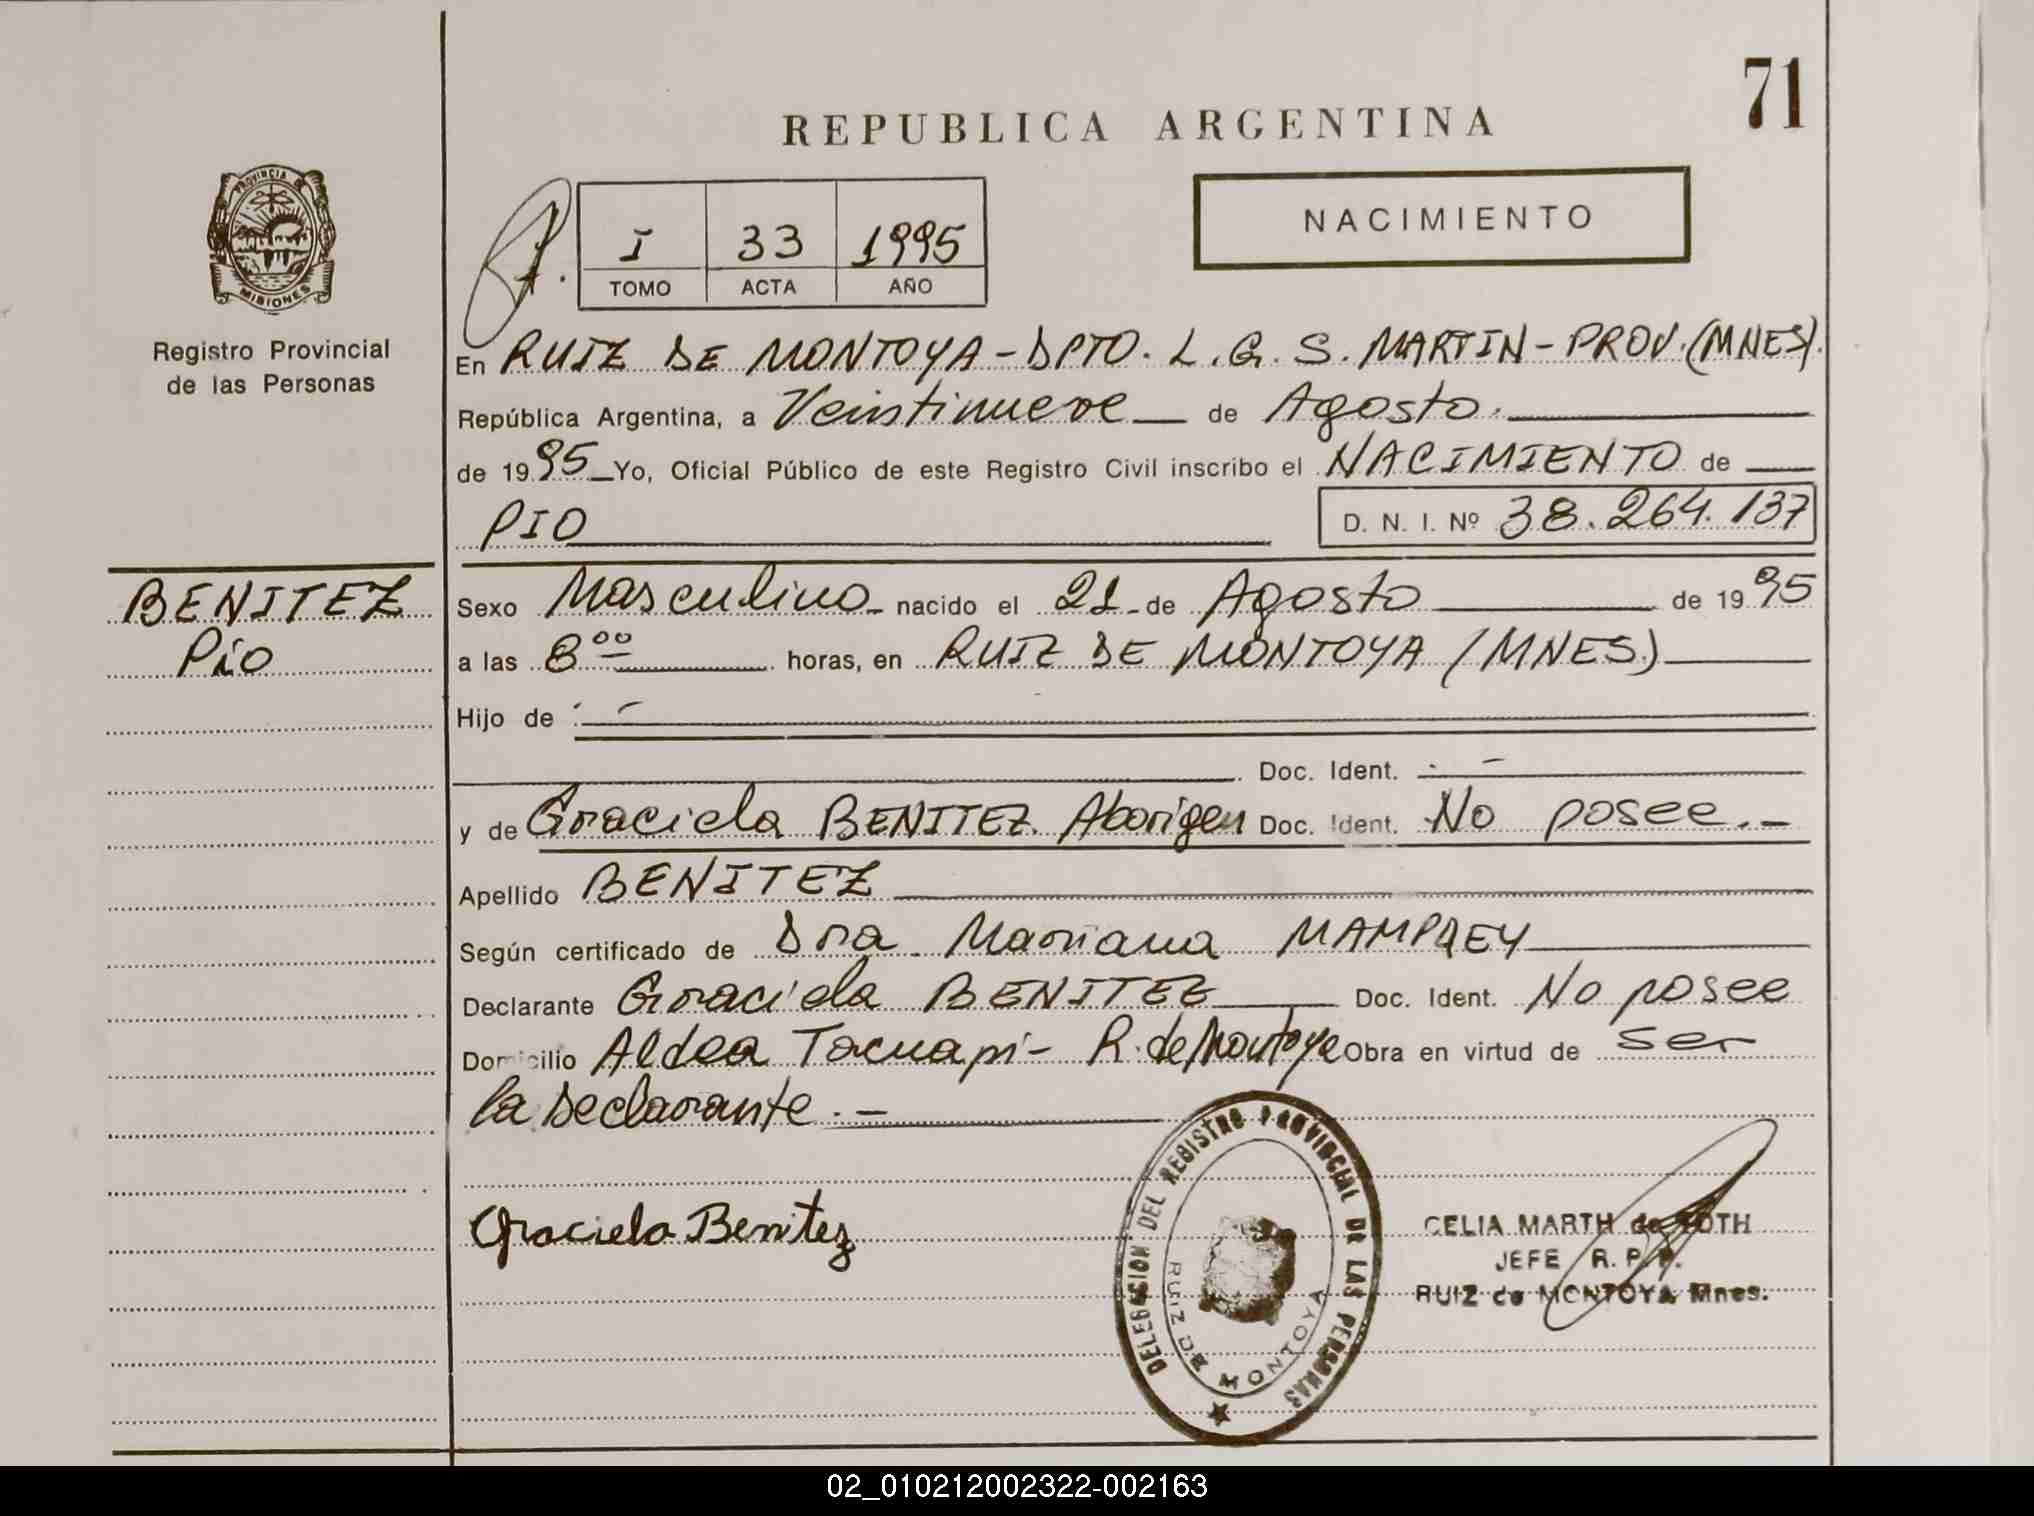 71
REPUBLICA ARGENTINA
PROVINCIA DE
MISIONES
Registro Provincial
de las Personas
I 33 1995
TOMO ACTA AÑO
NACIMIENTO
En RUIZ DE MONTOYA - DPTO. L. G. S. MARTIN - PROV. (MNES).
República Argentina, a Veintinueve de Agosto.
de 1995 Yo, Oficial Público de este Registro Civil inscribo el NACIMIENTO de
PIO D. N. I. Nº 38.264.137
BENITEZ
Pío
Sexo Masculino nacido el 21 de Agosto de 1995
a las 8 00 horas, en RUIZ DE MONTOYA (MNES.)
Hijo de : -
Doc. Ident. . -
y de Graciela BENITEZ. Aborigen Doc. Ident. No posee. -
Apellido BENITEZ
Según certificado de Dra. Mariana
Declarante Graciela BENITEZ Doc. Ident. No posee
Domicilio Aldea Tacuapi - R. de Montoya Obra en virtud de ser
la Declarante. -
Graciela Benitez
DELEGACION DEL REGISTRO PROVINCIAL DE LAS PERSONAS
RUIZ DE MONTOYA
CELIA MARTH de TOTH
JEFE R. P. P.
RUIZ de MONTOYA Mnes.
02_010212002322-002163